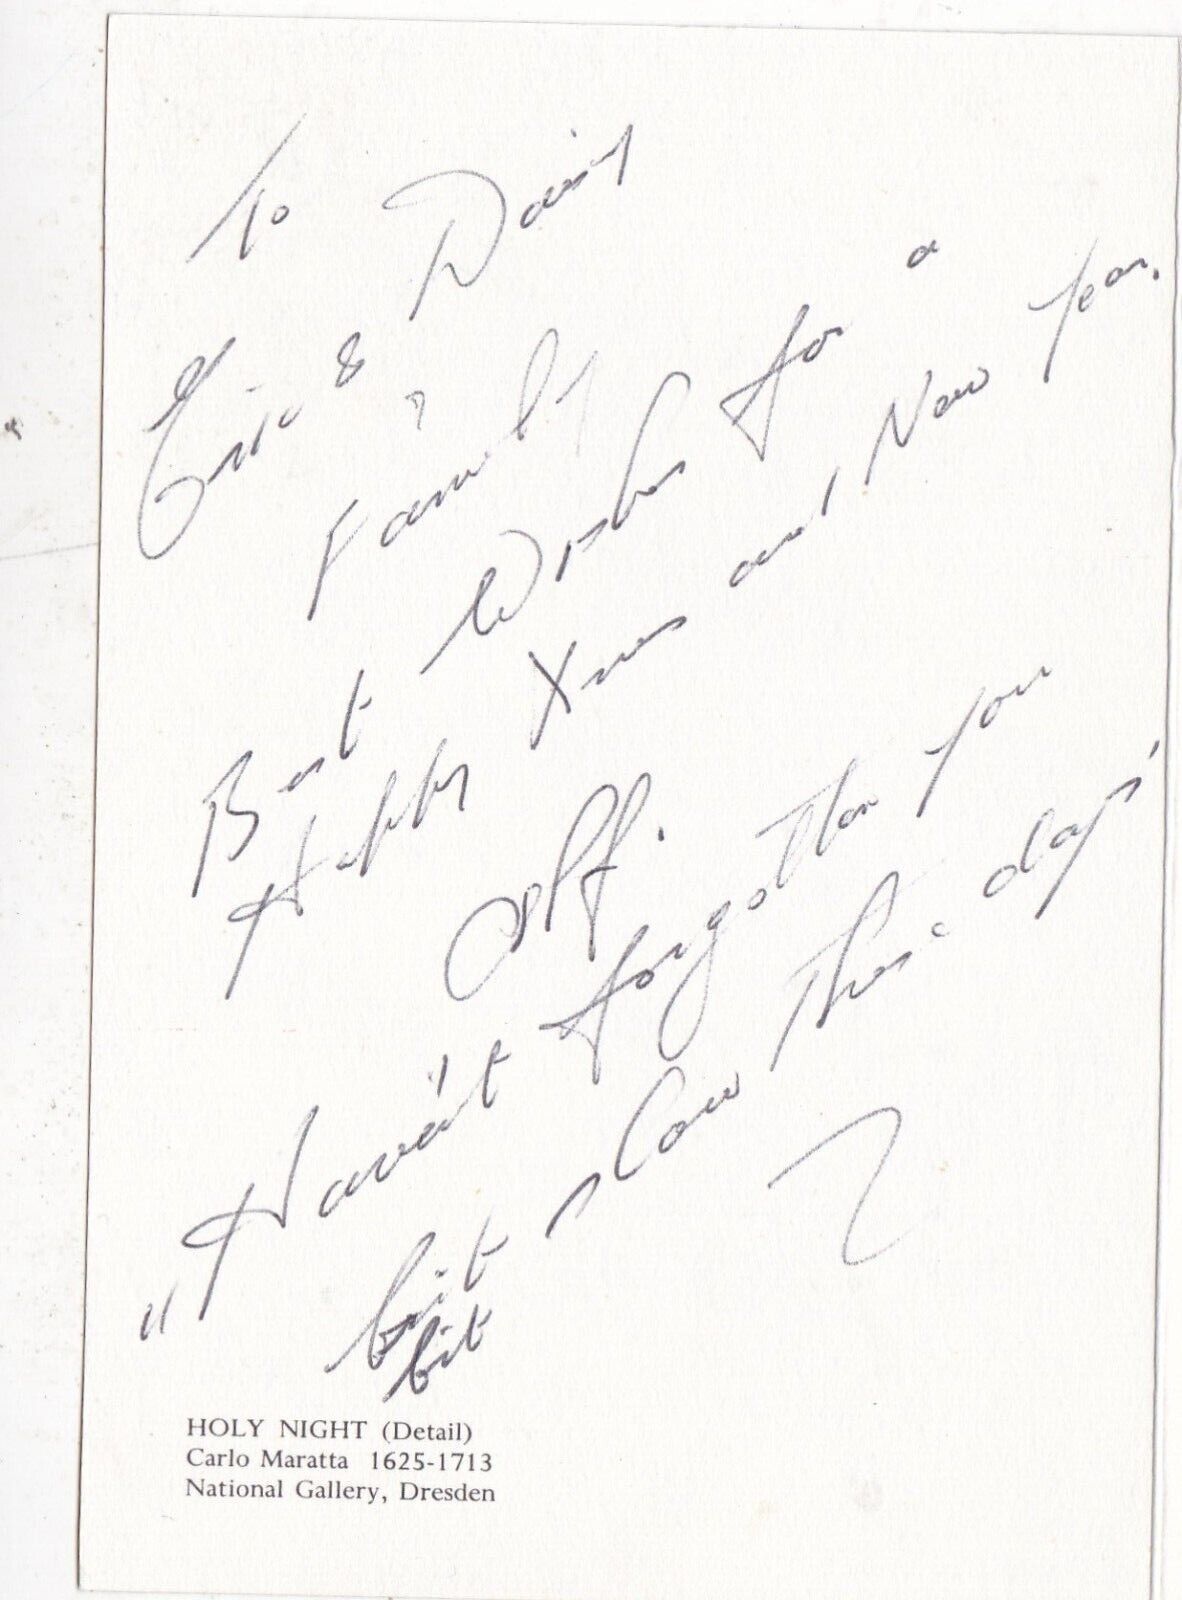 To David
& Family
Best Wishes for a
Happy Xmas and New Year.
"Haven't forgotten you
bit slow these days'
bit
HOLY NIGHT (Detail)
Carlo Maratta 1625-1713
National Gallery, Dresden